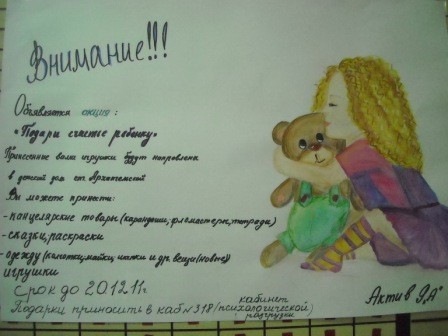 Внимание!!!
Объявляется акция:
"Подари счастье ребенку"
Принесенные вами игрушки будут направлены
в детский дом ст. Архонтской
Вы можете принести:
-концелярские товары(карандаши,фломастеры,тетради)
-сказки,раскраски
-одежду(колготки,майки, носки и др. вещи(новые))
игрушки
Срок до 20.12.11г.
Подарки приносить в каб№318/кабинет психологической разгрузки
Актив 9"А"